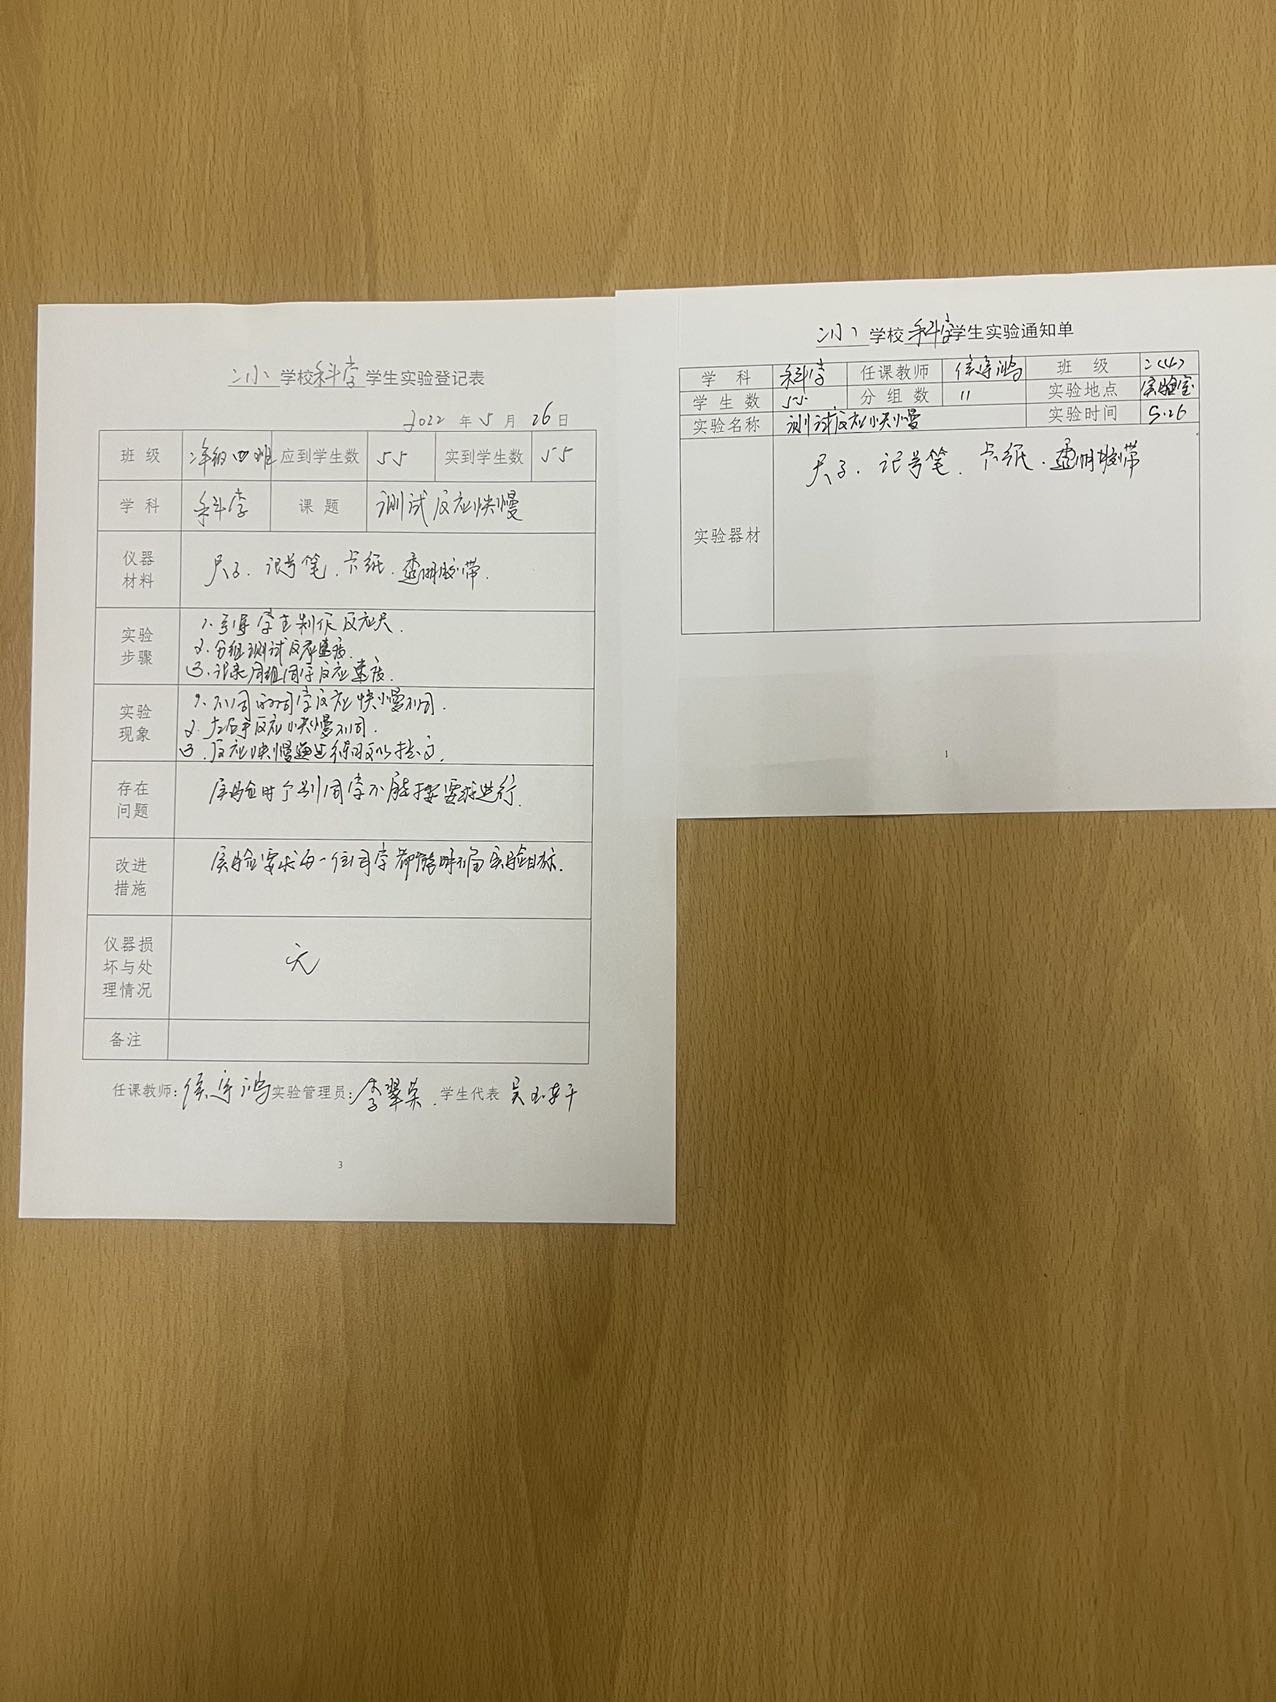 二小 学校科学 学生实验登记表
2022 年 5 月 26 日
班 级 二年级四班 应到学生数 55 实到学生数 55
学 科 科学 课 题 测试反应快慢
仪器材料 尺子、记号笔、卡纸、透明胶带.
实验步骤
1. 引导学生制作反应尺.
2. 分组测试反应速度.
3. 记录同组同学反应速度.
实验现象
1. 不同的同学反应快慢不同.
2. 左右手反应快慢不同.
3. 反应快慢通过练习可以提高.
存在问题 实验时个别同学不能按要求进行.
改进措施 实验要求每一位同学都能明确实验目标.
仪器损坏与处理情况 无
备注
任课教师: 侯守鸿 实验管理员: 李翠荣. 学生代表
3
二小 学校 科学 学生实验通知单
学 科 科学 任课教师 侯守鸿 班 级 二(4)
学 生 数 55 分 组 数 11 实验地点 实验室
实验名称 测试反应快慢 实验时间 5.26
实验器材 尺子、记号笔、卡纸、透明胶带
1